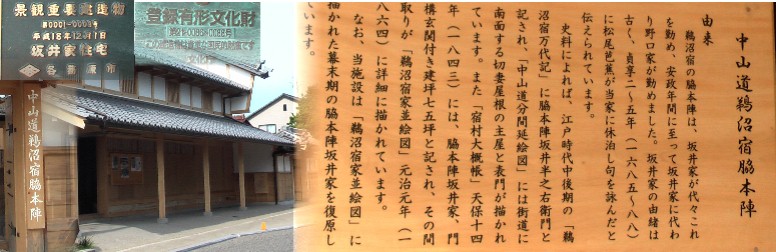 景観重要建造物
第0001-0003号
平成18年12月1日
坂井家住宅
各務原市
登録有形文化財
文化庁
中山道鵜沼宿脇本陣
中山道鵜沼宿脇本陣
由来
鵜沼宿の脇本陣は、坂井家が代々これ
を勤め、安政年間に至って坂井家に代わ
り野口家が勤めました。坂井家の由緒は
古く、貞享二～五年（一六八五～八八）
に松尾芭蕉が当家に休泊し句を詠んだと
伝えられています。
史料によれば、江戸時代中後期の「鵜
沼宿万代記」に脇本陣坂井半之右衛門と
記され、「中山道分間延絵図」には街道に
南面する切妻屋根の主屋と表門が描かれ
ています。また「宿村大概帳」天保十四
年（一八四三）には、脇本陣坂井家、門
構玄関付き建坪七五坪と記され、その間
取りが「鵜沼宿家並絵図」元治元年（一
八六四）に詳細に描かれています。
なお、当施設は「鵜沼宿家並絵図」に
描かれた幕末期の脇本陣坂井家を復原し
ています。